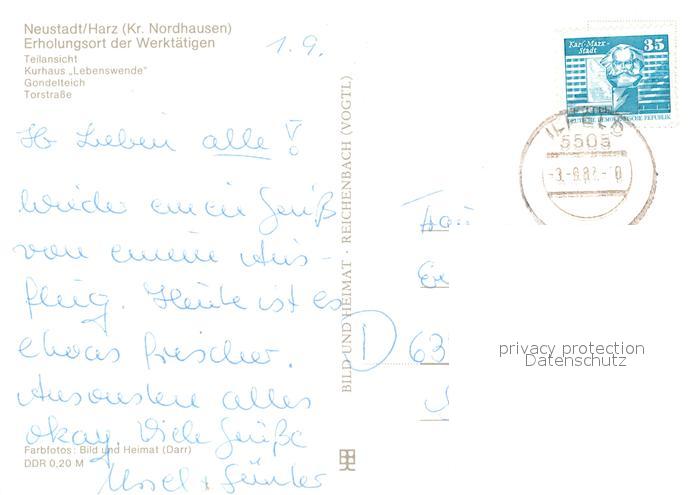 Neustadt/Harz (Kr. Nordhausen)
Erholungsort der Werktätigen
Teilansicht
Kurhaus „Lebenswende"
Gondelteich
Torstraße
1.9.
Karl-Marx-
Stadt
35
DEUTSCHE DEMOKRATISCHE REPUBLIK
5505
Ih Lieben alle!
wieder einen Gruß
von einem Aus-
flug. Heute ist es
etwas frischer.
Ansonsten alles
okay. Viele Grüße
Ussel + Günter
BILD UND HEIMAT · REICHENBACH (VOGTL)
D 63
privacy protection
Datenschutz
Farbfotos: Bild und Heimat (Darr)
DDR 0,20 M